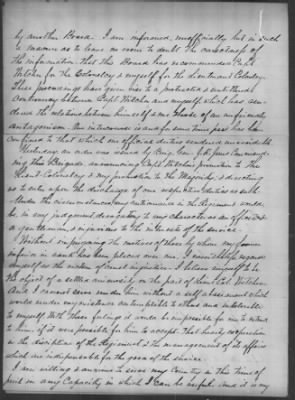 by another Board. I am informed, unofficially but in such
a manner as to leave no room to doubt the correctness of
the information that this Board has recommended Capt
Witcher for the Colonelcy & myself for the Lieutenant Colonelcy.
These proceedings have given rise to a protracted & embittered
controversy between Capt Witcher and myself which has ren-
dered the relations between himself & me those of an unfriendly
antagonism. Our intercourse is and for some time past has been
confined to that which our official duties rendered unavoidable.
Yesterday an order was issued by Brig Gen. command-
ing this Brigade, announcing Capt Witcher's promotion to the
Lieut Colonelcy & my promotion to the Majority & directing
us to enter upon the discharge of our respective duties as such.
Under the circumstances, my continuance in the Regiment would
be, in my judgement derogatory to my character as an officer &
a gentleman & injurious to the interests of the service.
Without impugning the motives of those by whom my former
inferior in rank has been placed over me, I must still regard
myself as the victim of great injustice. I believe myself to be
the object of a settled animosity on the part of Lieut Col. Witcher
and I cannot serve under him without a self abasement which
would render my existence contemptible to others and intolerable
to myself. With these feelings it would be impossible for me to extend
to him, if it were possible for him to accept that hearty cooperation
in the discipline of the Regiment & the management of its affairs
which are indispensable for the good of the service.
I am willing & anxious to serve my Country in this time of
peril in any Capacity in which I can be useful. And it is my